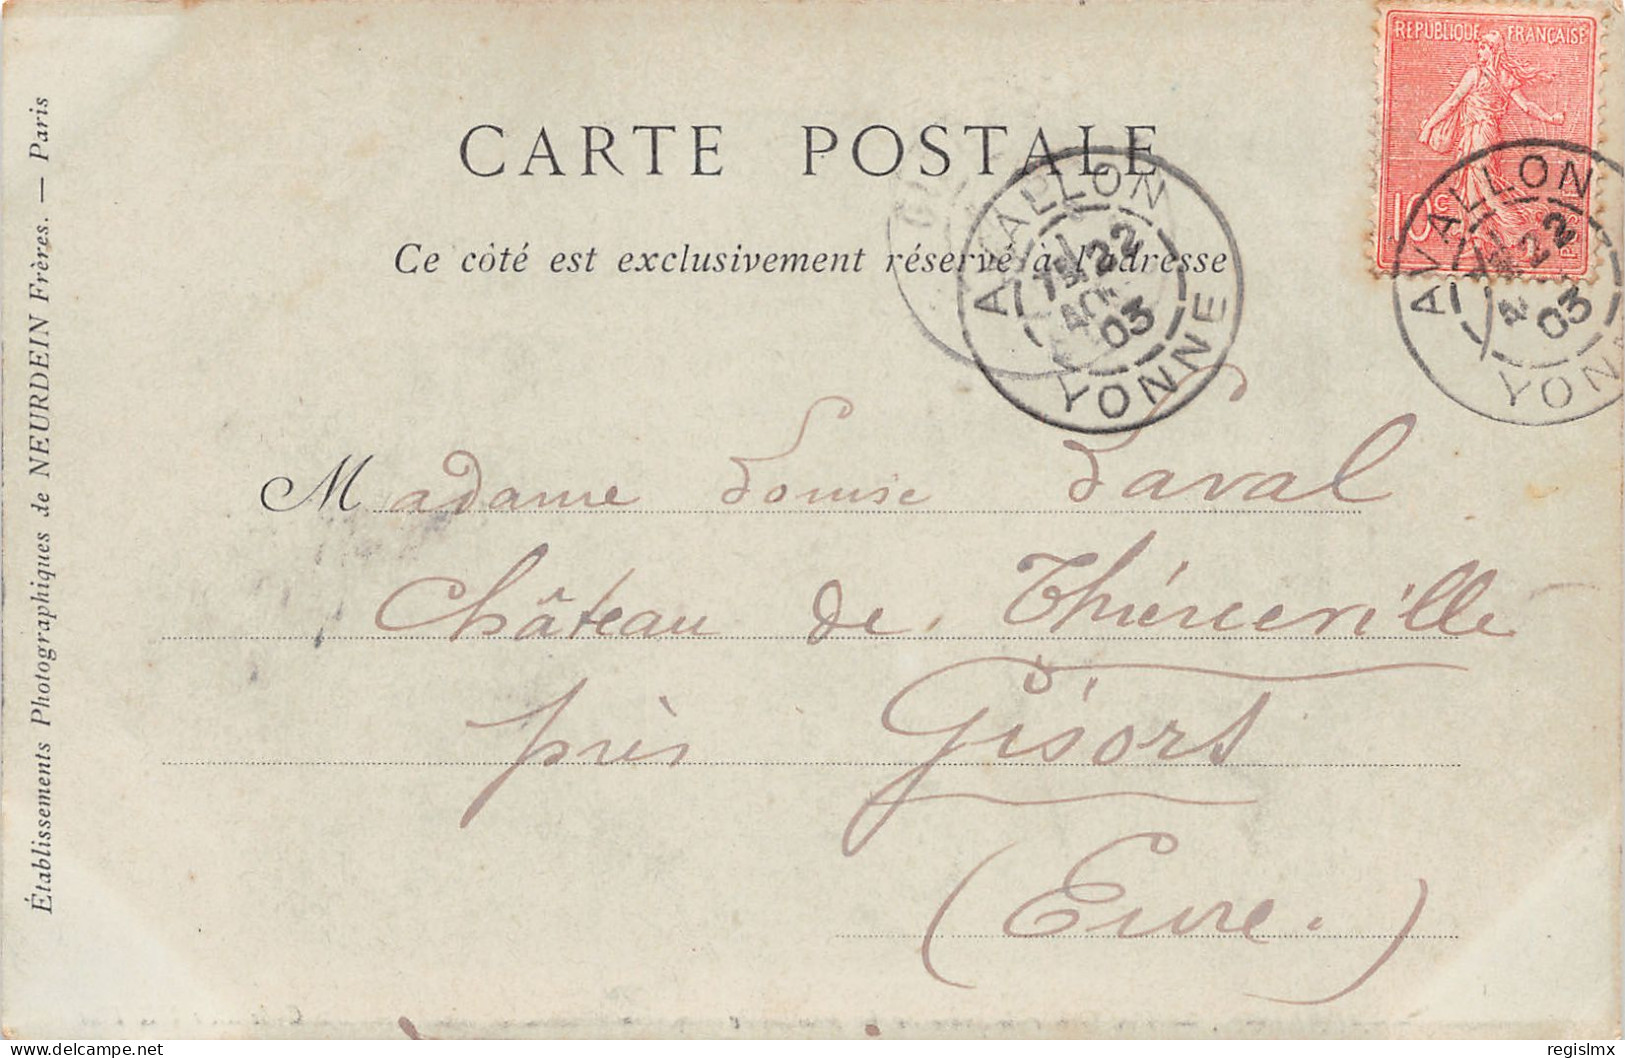 CARTE POSTALE
Ce côté est exclusivement réservé à l'adresse
RÉPUBLIQUE FRANÇAISE
10c
POSTES
AVALLON
22
03
YONNE
AVALLON
22
03
YONNE
Madame Louise Laval
Château de Thierceville
près Gisors
(Eure.)
Établissements Photographiques de NEURDEIN Frères. — Paris
delcampe.net
regislmx